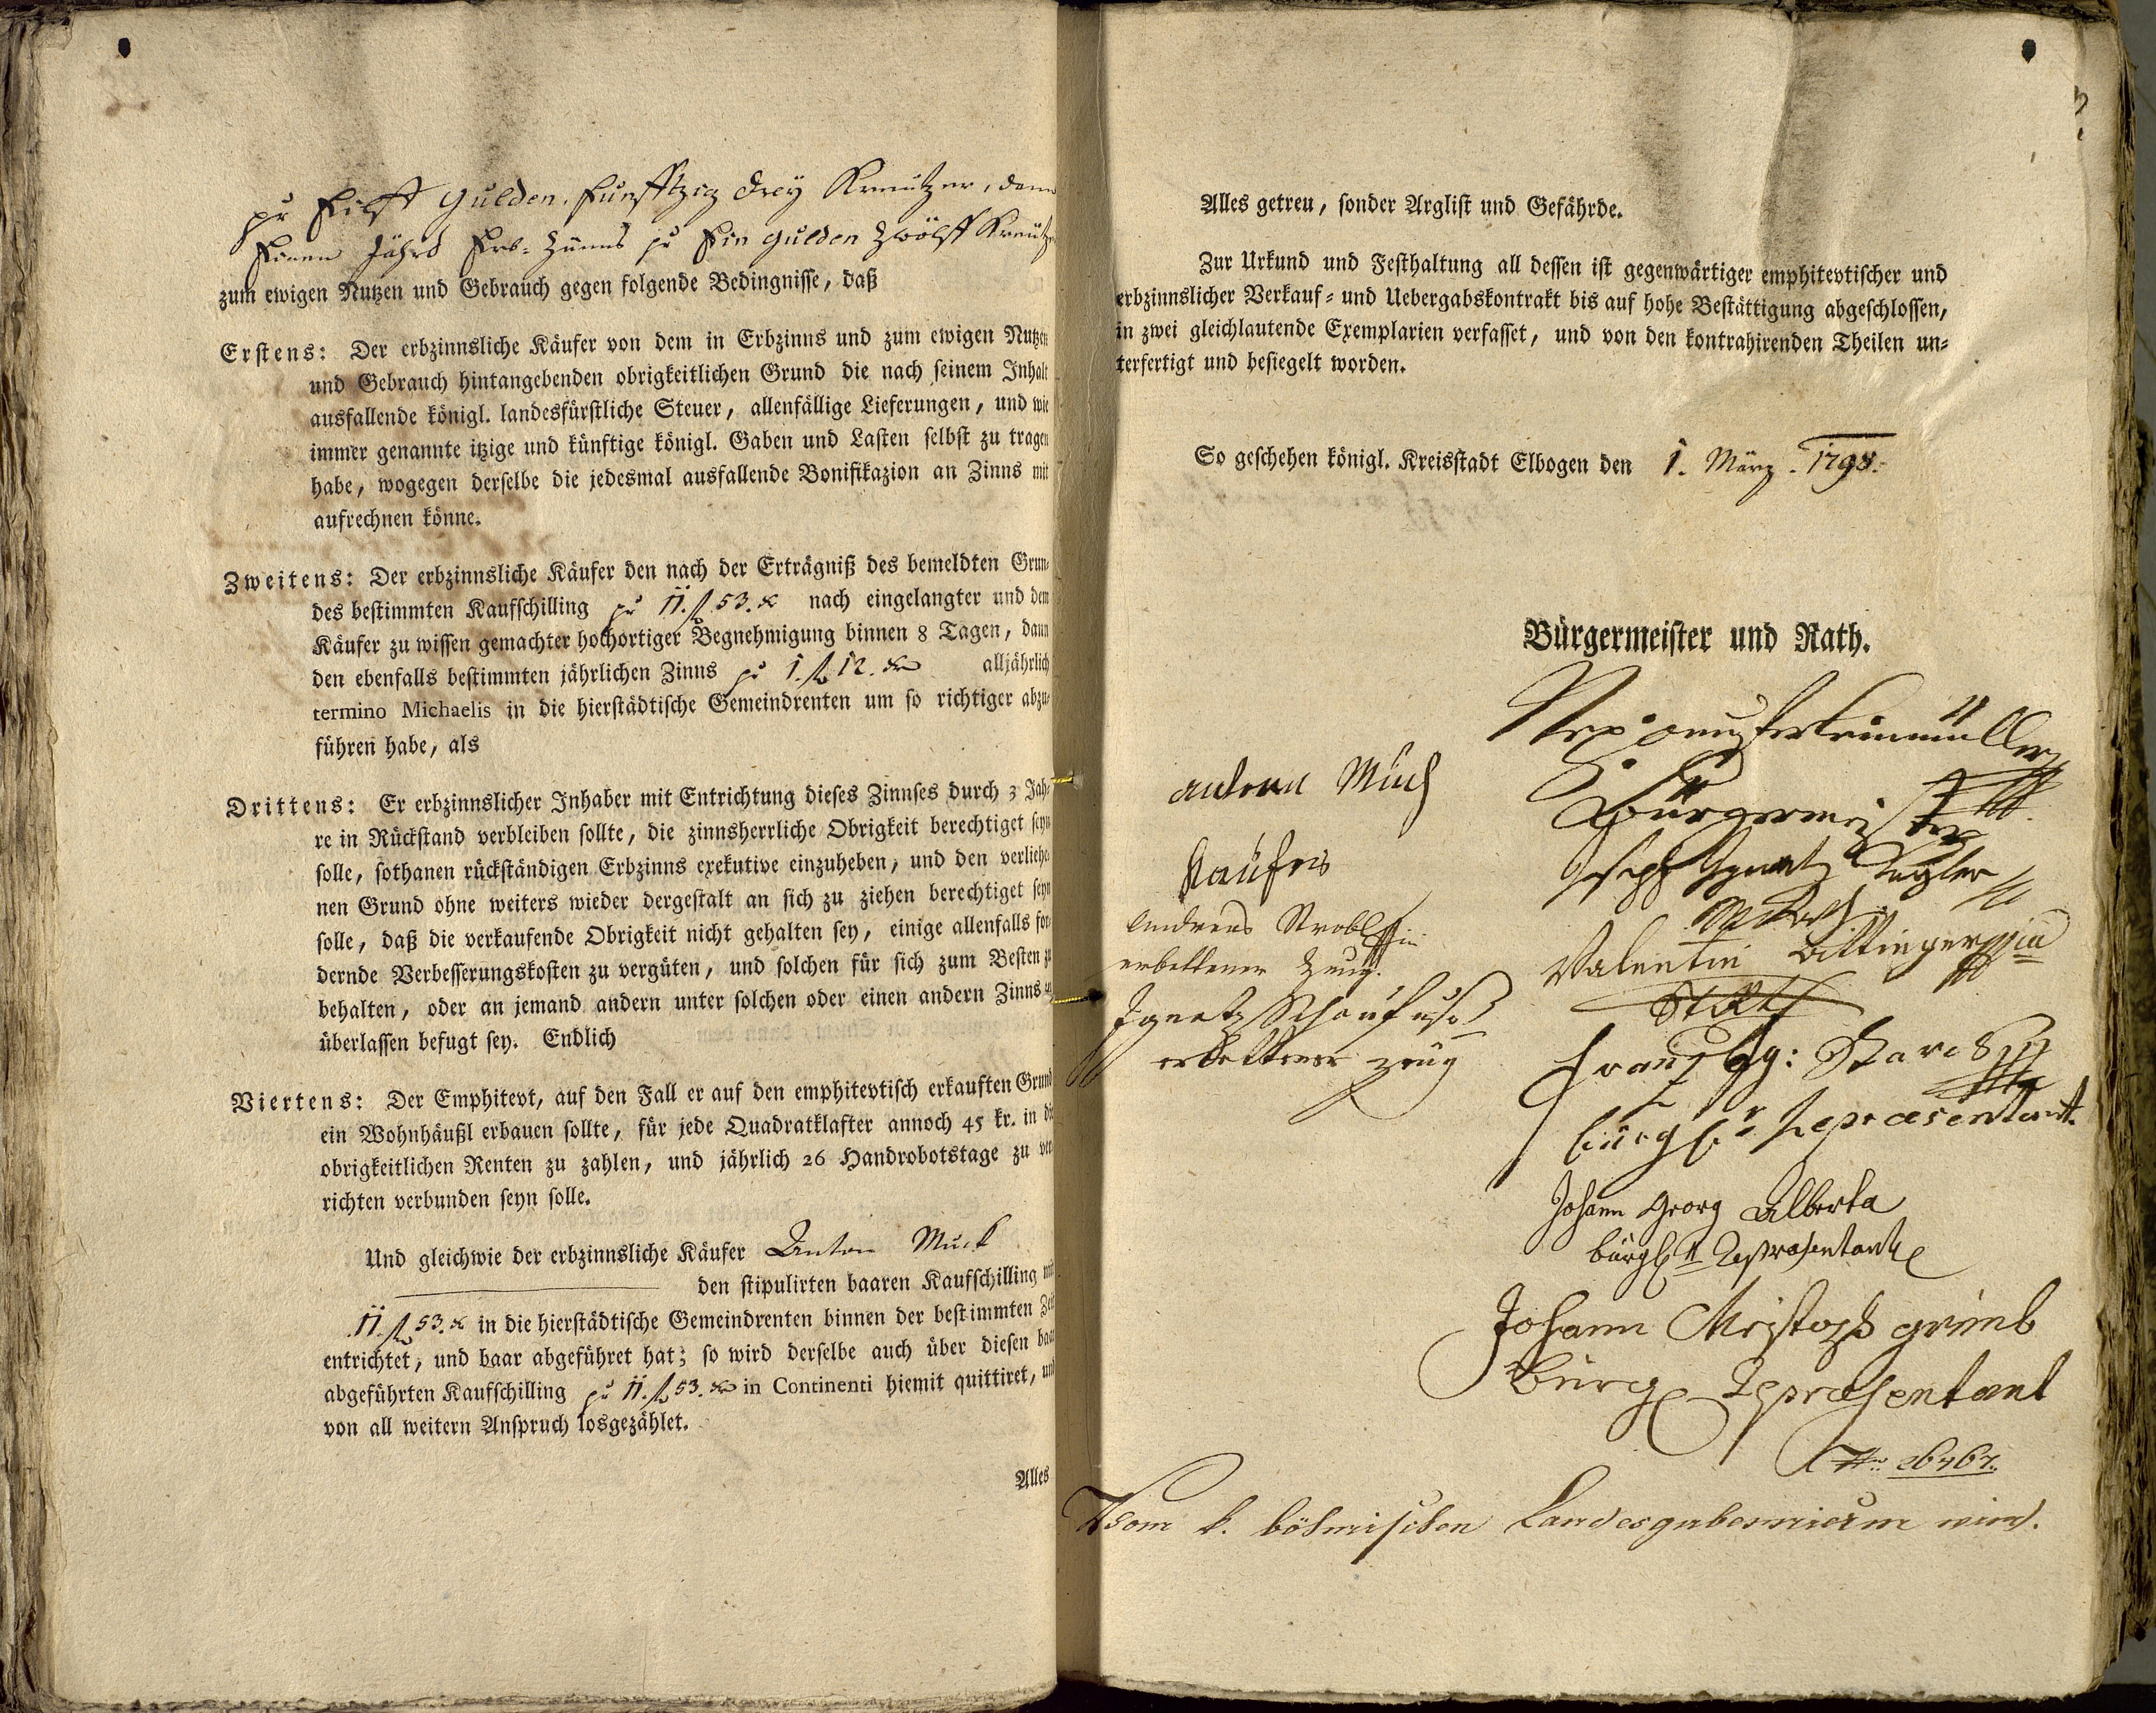 pr Eilff Gulden, funfftzig drey Kreutzer, dann
Einen Jährl Erb-Zünns pr Ein Gulden Zwölff Kreutzer
zum ewigen Nutzen und Gebrauch gegen folgende Bedingnisse, daß
Erstens: Der erbzinnsliche Käufer von dem in Erbzinns und zum ewigen Nutzen
und Gebrauch hintangebenden obrigkeitlichen Grund die nach seinem Inhalt
ausfallende königl. landesfürstliche Steuer, allenfällige Lieferungen, und wie
immer genannte itzige und künftige königl. Gaben und Lasten selbst zu tragen
habe, wogegen derselbe die jedesmal ausfallende Bonifikazion an Zinns mit
aufrechnen könne.
Zweitens: Der erbzinnsliche Käufer den nach der Erträgniß des bemeldten Grun-
des bestimmten Kaufschilling pr 11. f 53. x nach eingelangter und dem
Käufer zu wissen gemachter hochortiger Begnehmigung binnen 8 Tagen, dann
den ebenfalls bestimmten jährlichen Zinns pr 1. f 12. x alljährlich
termino Michaelis in die hierstädtische Gemeindrenten um so richtiger abzu-
führen habe, als
Drittens: Er erbzinnslicher Inhaber mit Entrichtung dieses Zinnses durch 3 Jah-
re in Rückstand verbleiben sollte, die zinnsherrliche Obrigkeit berechtiget seyn
solle, sothanen rückständigen Erbzinns exekutive einzuheben, und den verliehe-
nen Grund ohne weiters wieder dergestalt an sich zu ziehen berechtiget seyn
solle, daß die verkaufende Obrigkeit nicht gehalten sey, einige allenfalls for-
dernde Verbesserungskosten zu vergüten, und solchen für sich zum Besten zu
behalten, oder an jemand andern unter solchen oder einen andern Zinns zu
überlassen befugt sey. Endlich
Viertens: Der Emphitevt, auf den Fall er auf den emphitevtisch erkauften Grund
ein Wohnhäußl erbauen sollte, für jede Quadratklafter annoch 45 kr. in die
obrigkeitlichen Renten zu zahlen, und jährlich 26 Handrobotstage zu ver-
richten verbunden seyn solle.
Und gleichwie der erbzinnsliche Käufer Anton Muck
den stipulirten baaren Kaufschilling mit
11. f 53. x in die hierstädtische Gemeindrenten binnen der bestimmten Zeit
entrichtet, und baar abgeführet hat; so wird derselbe auch über diesen baar
abgeführten Kaufschilling pr 11. f 53. x in Continenti hiemit quittiret, und
von all weitern Anspruch losgezählet.
Alles
Alles getreu, sonder Arglist und Gefährde.
Zur Urkund und Festhaltung all dessen ist gegenwärtiger emphitevtischer und
erbzinnslicher Verkauf- und Uebergabskontrakt bis auf hohe Bestättigung abgeschlossen,
in zwei gleichlautende Exemplarien verfasset, und von den kontrahirenden Theilen un-
terfertigt und besiegelt worden.
So geschehen königl. Kreisstadt Elbogen den 1. März. 1798.
Bürgermeister und Rath.
Bürgermeister
Joseph Ignatz
Valentin
Franz
bürgl. Repræsentant.
Johann Georg Alberta
bürgl. Repræsentant
Johann Christoph
Bürgl Repræsentant
Muck
Käufer
Andreas Strobl
erbettener Zeug.
Ignatz Schaufuß
erbettener Zeug
Vom k. böhmischen Landesgubernium wird.